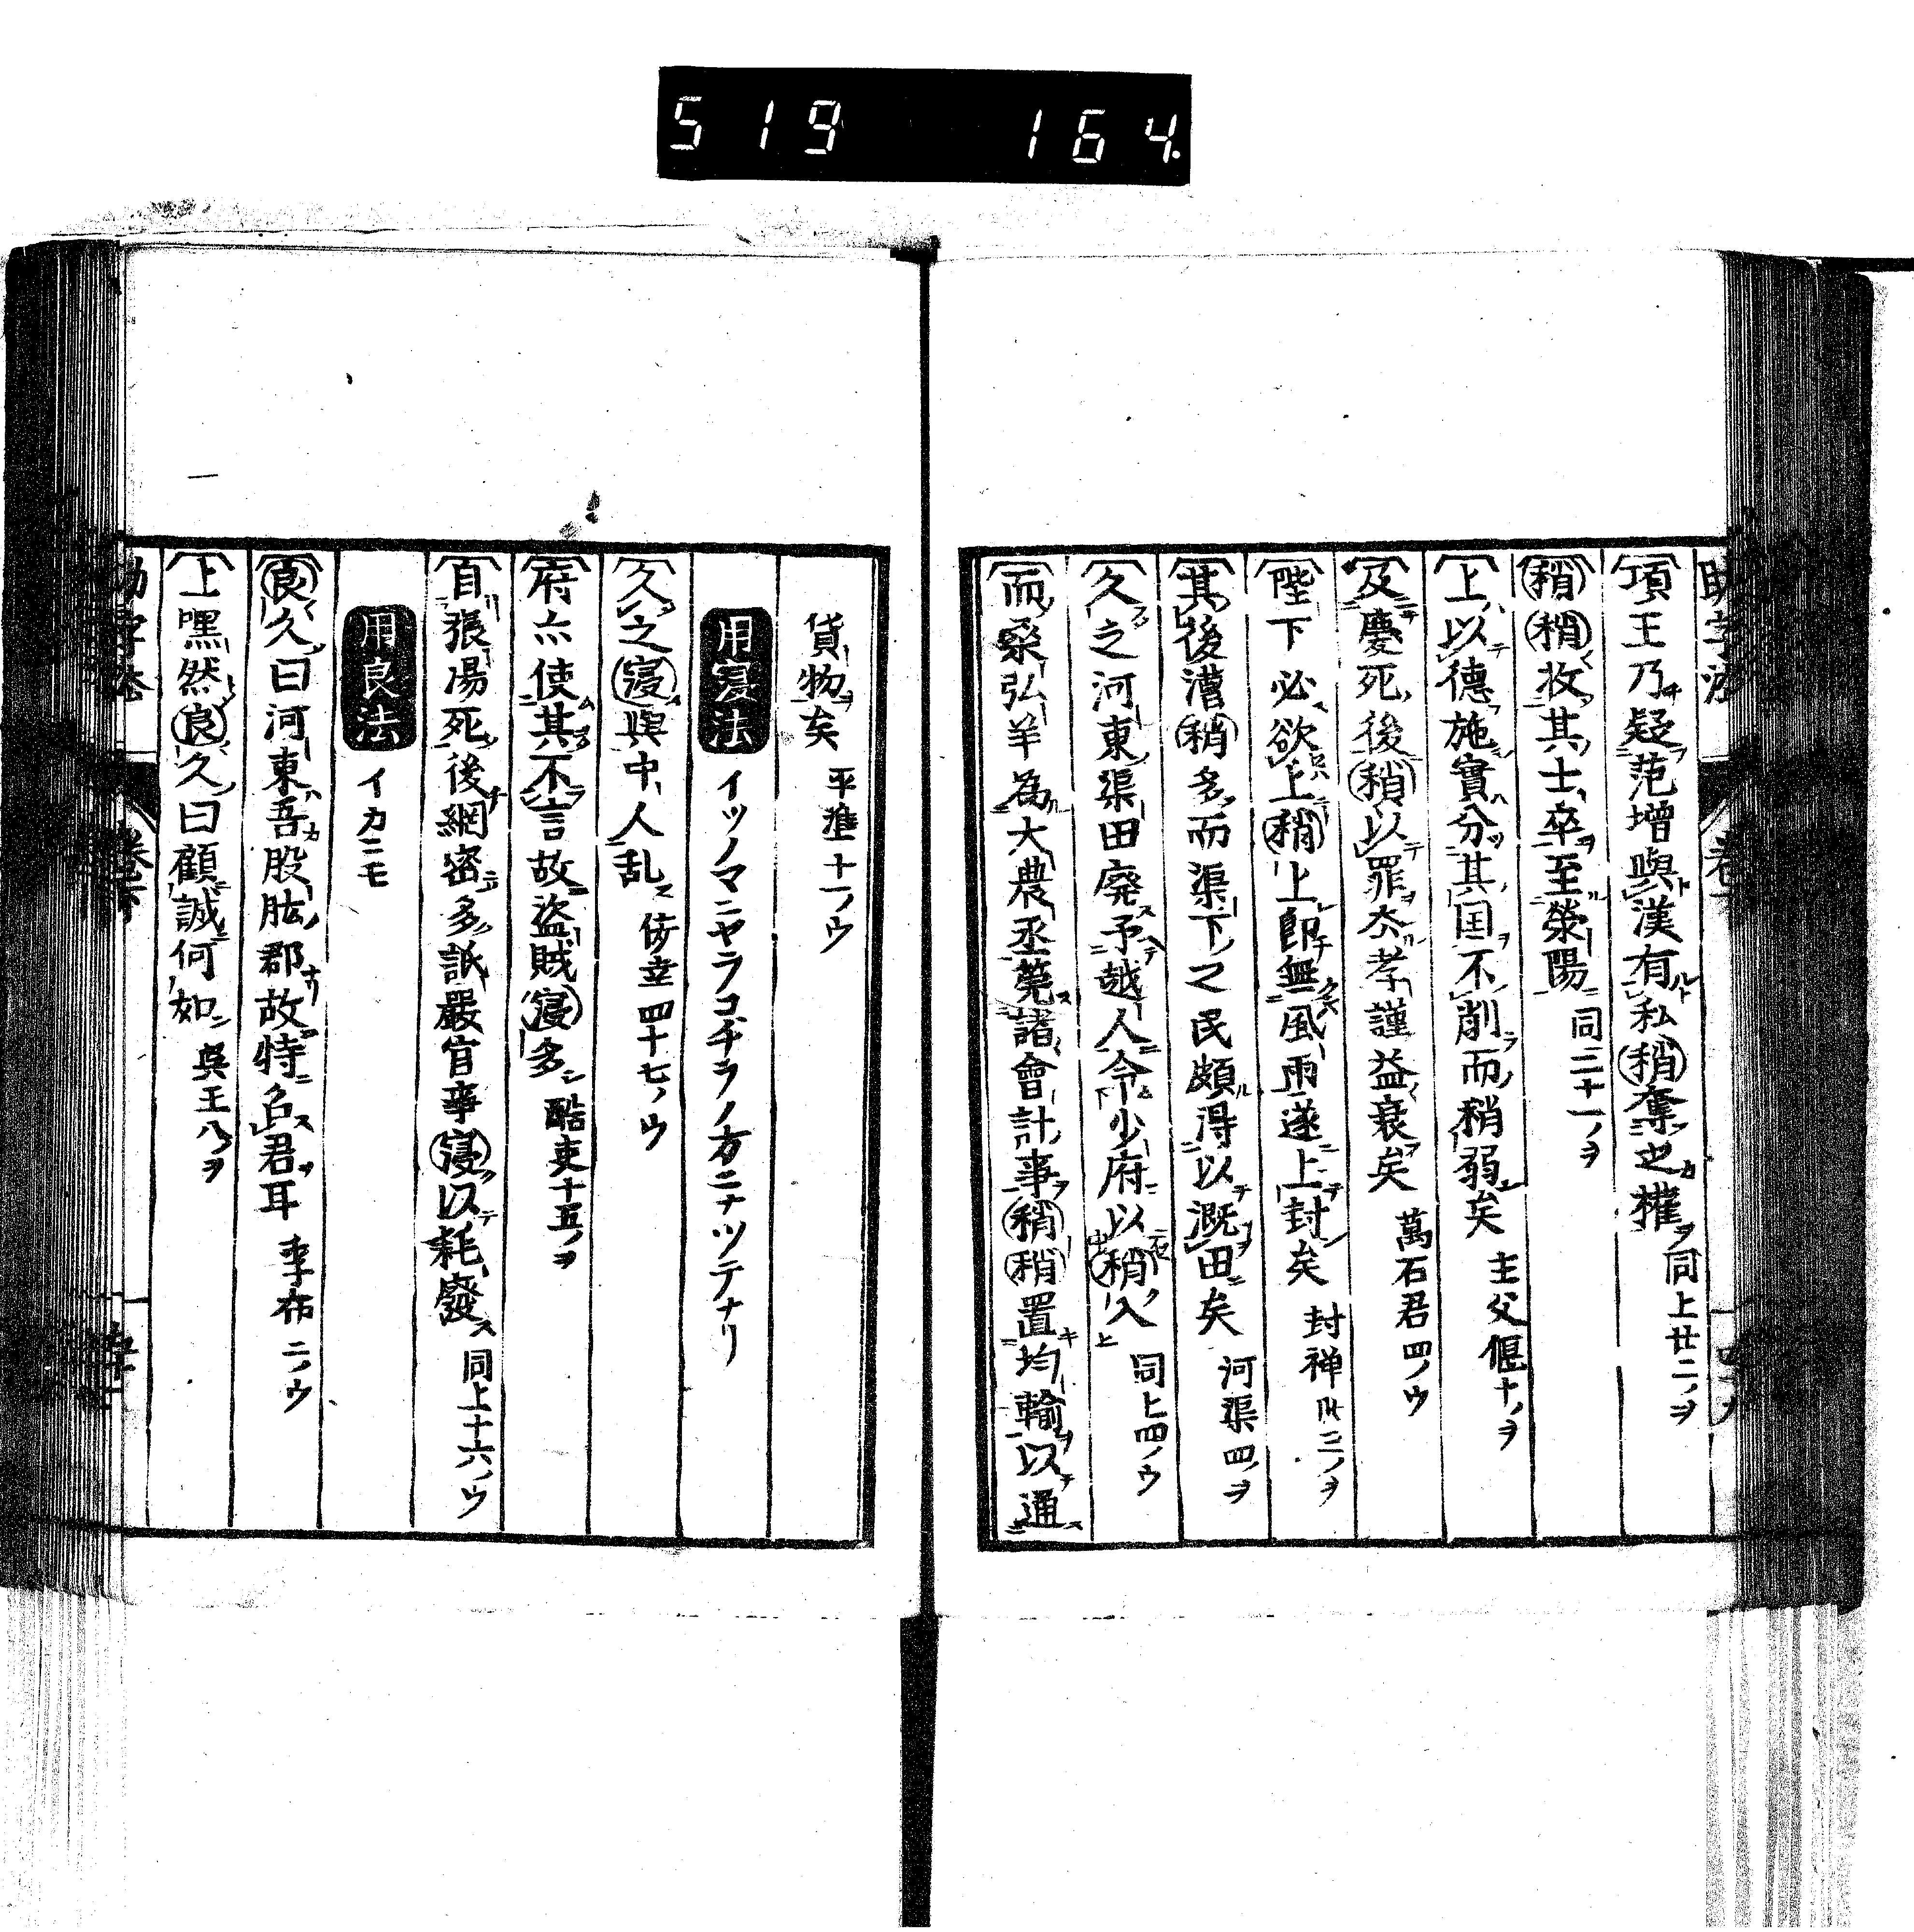 519 164.
項王乃疑范增與漢有私稍奪之權 同上廿二ノヲ
稍稍收其士卒至滎陽 同二十一ノヲ
上以德施實分其国不削而稍弱矣 主父偃十ノヲ
及慶死後稍以罪去孝謹益衰矣 萬石君四ノウ
陛下必欲上稍上即無風雨遂上封矣 封禅卅三ノヲ
其後漕稍多而渠下之民頗得以溉田矣 河渠四ノヲ
久之河東渠田廃予越人令少府以稍入 同上四ノウ
而桒弘羊為大農丞筦諸會計事稍稍置均輸以通
貨物矣 平準十一ノウ
用寖法 イツノマニヤラコチラノ方ニナツテナリ
久之寖與中人乱 佞幸四十七ノウ
府亦使其不言故盗賊寖多 酷吏十五ノヲ
自張湯死後網密多詆嚴官事寖以耗廢 同上十六ノウ
用良法 イカニモ
良久曰河東吾股肱郡故特召君耳 季布二ノウ
上嘿然良久曰顧誠何如 吳王八ノヲ